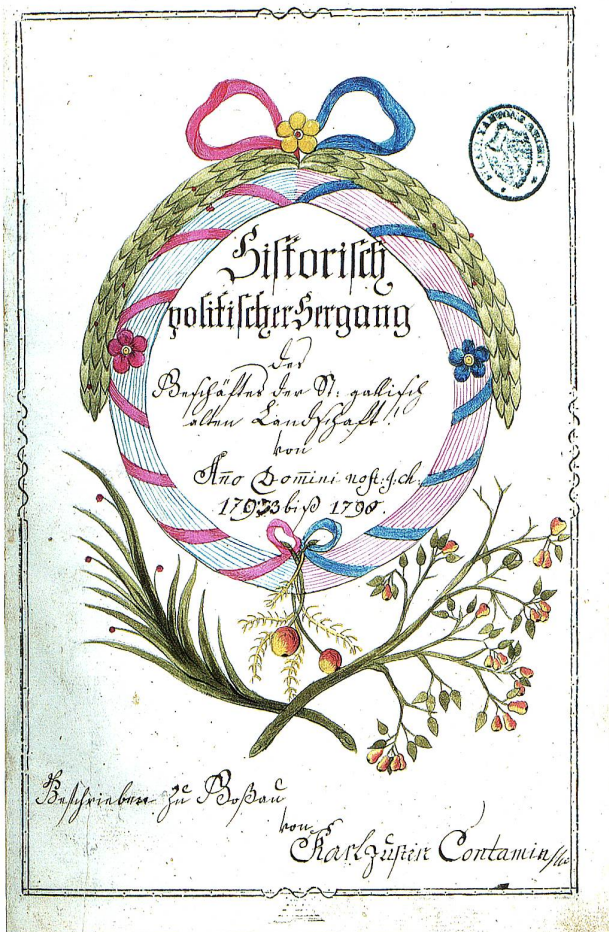 Historisch
politischer Hergang
des
Geschäftes der St: gallisch
alten Landschaft!
von
Año Domini nost. J. ch.
1793 biß 1798.
Beschrieben zu Goßau
von
Karl Justin Contamin